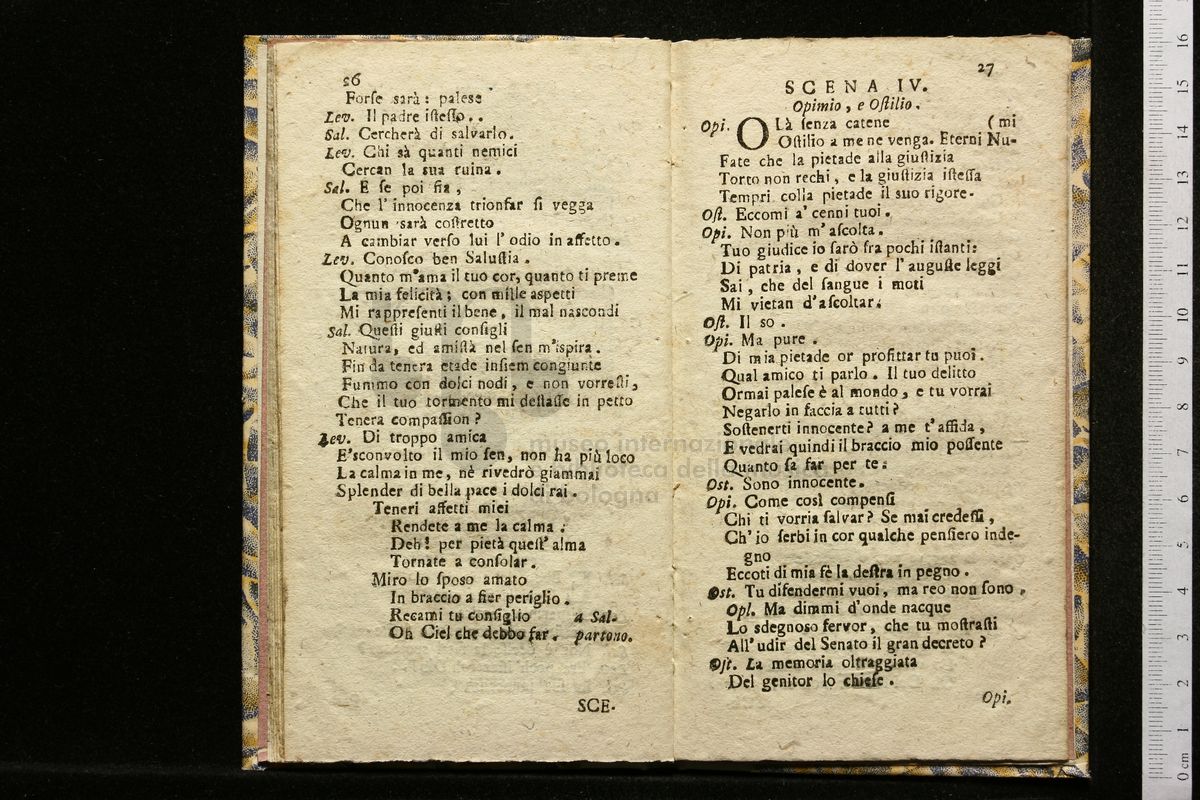 26
Forſe sarà: palese
Lev. Il padre iſteſſo..
Sal. Cercherà di salvarlo.
Lev. Chi sà quanti nemici
Cercan la sua ruina.
Sal. E se poi fia,
Che l'innocenza trionfar ſi vegga
Ognun sarà coſtretto
A cambiar verſo lui l'odio in affetto.
Lev. Conoſco ben Saluſtia.
Quanto m'ama il tuo cor, quanto ti preme
La mia felicità; con mille aspetti
Mi rappreſenti il bene, il mal nascondi
Sal. Queſti giuſti conſigli
Natura, ed amiſtà nel ſen m'iſpira.
Fin da tenera etade inſiem congiunte
Fummo con dolci nodi, e non vorreſti,
Che il tuo tormento mi deſtaſſe in petto
Tenera compaſſion?
Lev. Di troppo amica
E'sconvolto il mio ſen, non ha più loco
La calma in me, nè rivedrò giammai
Splender di bella pace i dolci rai.
Teneri affetti miei
Rendete a me la calma:
Deh! per pietà queſt'alma
Tornate a conſolar.
Miro lo ſposo amato
In braccio a fier periglio.
Recami tu conſiglio a Sal.
Oh Ciel che debbo far. partono.
SCE-
27
SCENA IV.
Opimio, e Oſtilio.
Opi. OLà ſenza catene (mi
Oſtilio a me ne venga. Eterni Nu-
Fate che la pietade alla giuſtizia
Torto non rechi, e la giuſtizia iſteſſa
Tempri colla pietade il suo rigore.
Oſt. Eccomi a' cenni tuoi.
Opi. Non più m'aſcolta.
Tuo giudice io ſarò fra pochi iſtanti:
Di patria, e di dover l'auguſte leggi
Sai, che del ſangue i moti
Mi vietan d'aſcoltar.
Oſt. Il so.
Opi. Ma pure.
Di mia pietade or profittar tu puoi.
Qual amico ti parlo. Il tuo delitto
Ormai palese è al mondo, e tu vorrai
Negarlo in faccia a tutti?
Soſtenerti innocente? a me t'affida,
E vedrai quindi il braccio mio poſſente
Quanto ſa far per te.
Ost. Sono innocente.
Opi. Come così compenſi
Chi ti vorria ſalvar? Se mai credeſſi,
Ch'io ſerbi in cor qualche penſiero inde-
gno
Eccoti di mia fè la deſtra in pegno.
Ost. Tu difendermi vuoi, ma reo non ſono.
Opi. Ma dimmi d'onde nacque
Lo sdegnoſo fervor, che tu moſtraſti
All'udir del Senato il gran decreto?
Oſt. La memoria oltraggiata
Del genitor lo chieſe.
Opi.